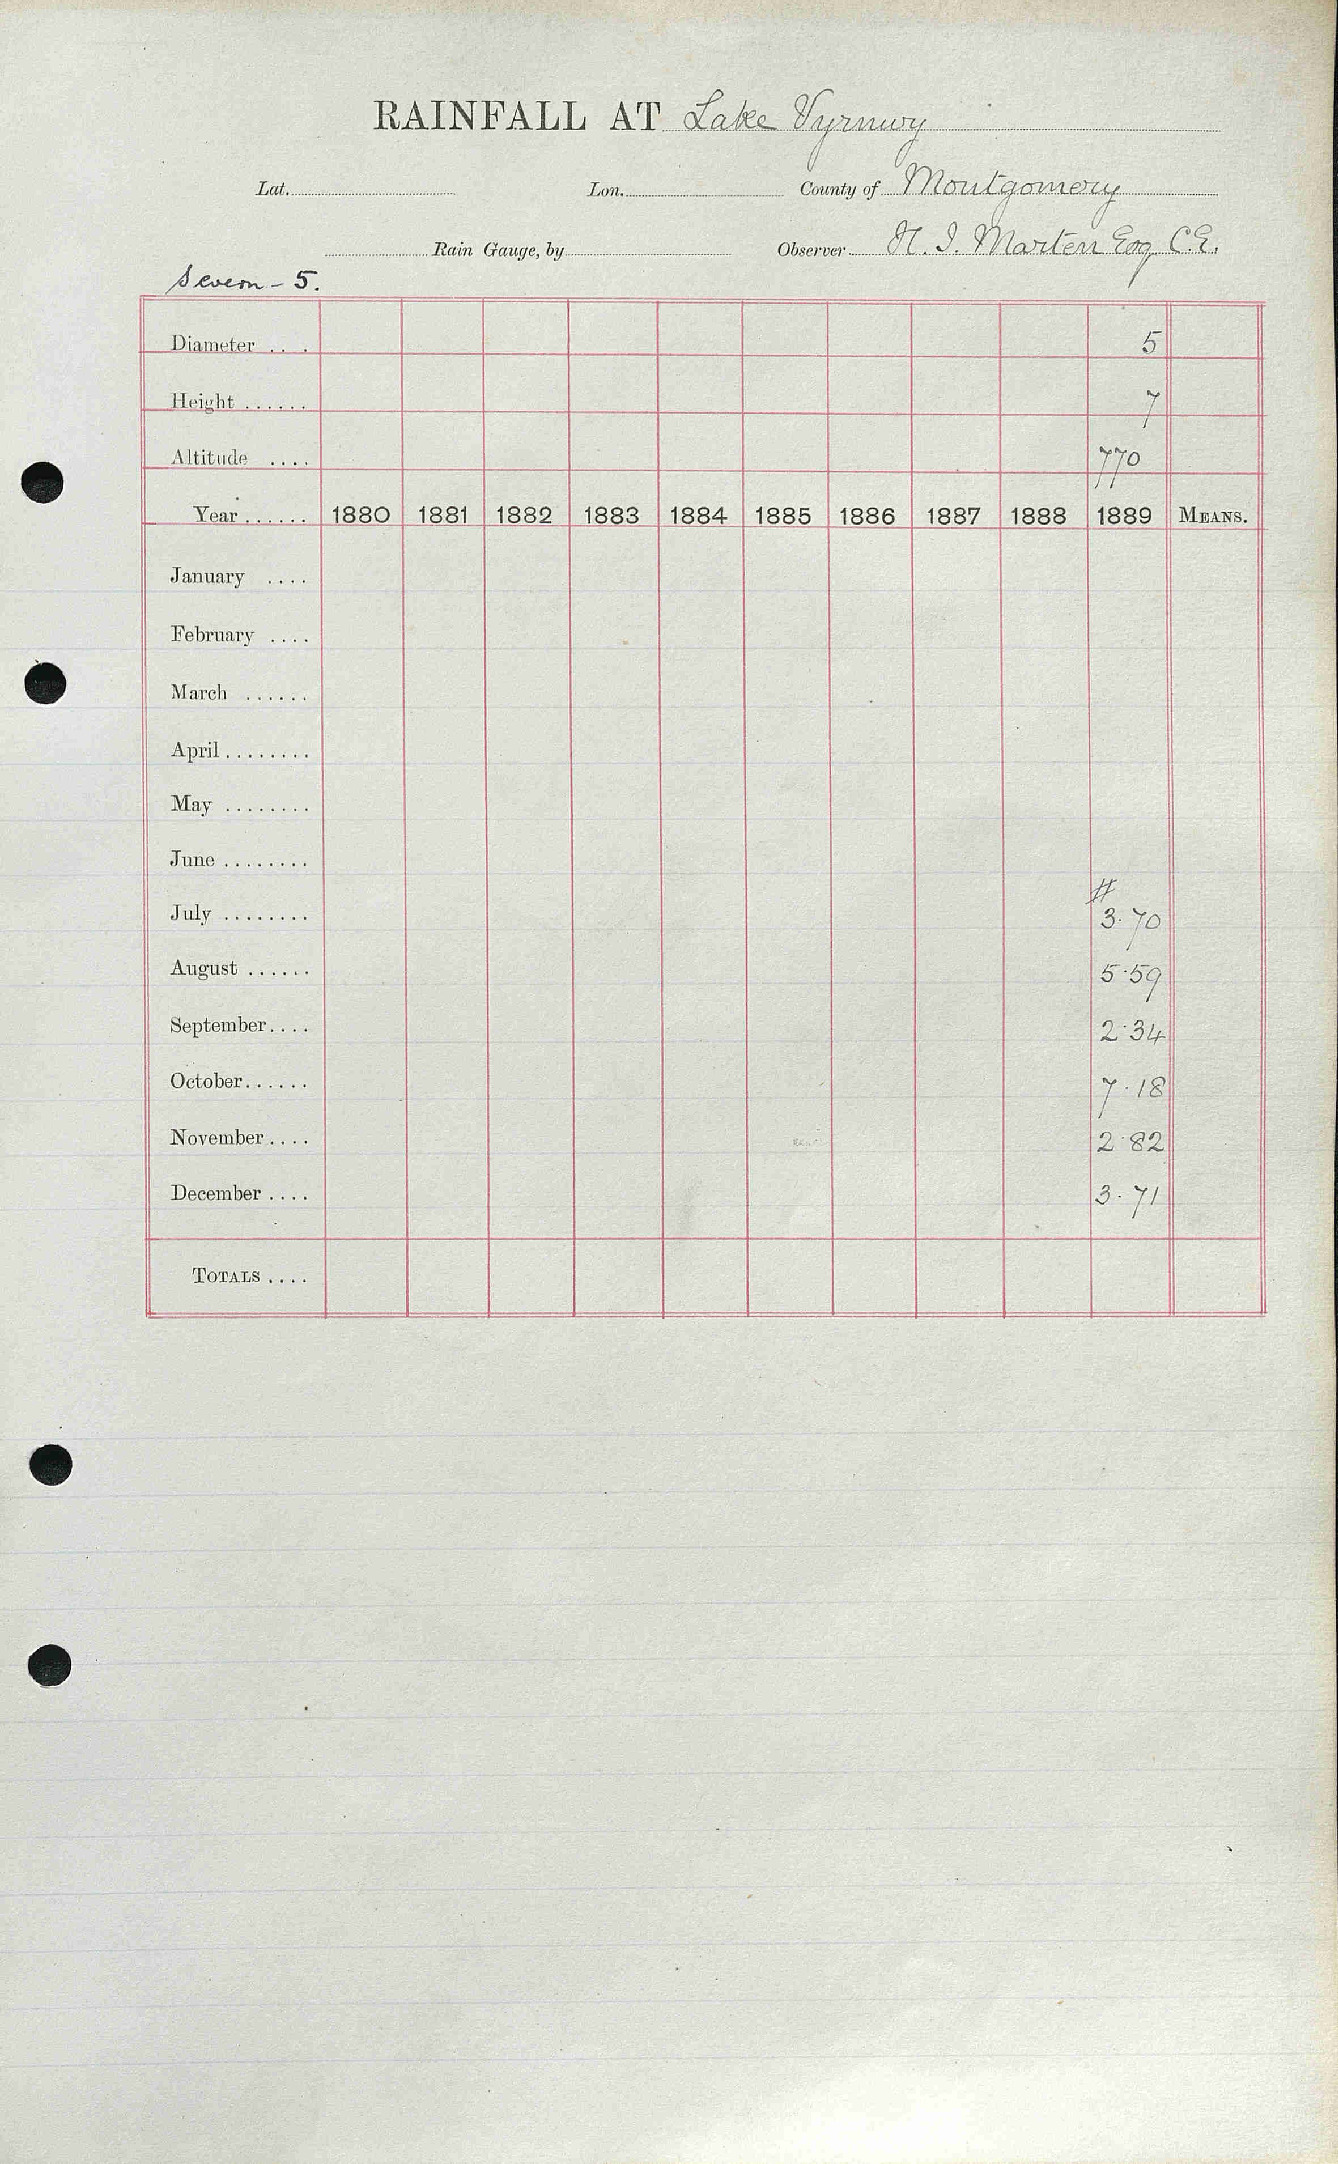 RAINFALL AT Lake Vyrnwy
Lat. Lon. County of Montgomery
Rain Gauge, by Observer H. J. Marten Esq C.E.
Severn - 5.
Diameter .... 5
Height ...... 7
Altitude .... 770
Year ...... 1880 1881 1882 1883 1884 1885 1886 1887 1888 1889 MEANS.
January ....
February ....
March ......
April ........
May ........
June ........
#
July ........ 3.70
August ...... 5.59
September.... 2.34
October...... 7.18
November.... 2.82
December .... 3.71
TOTALS ....